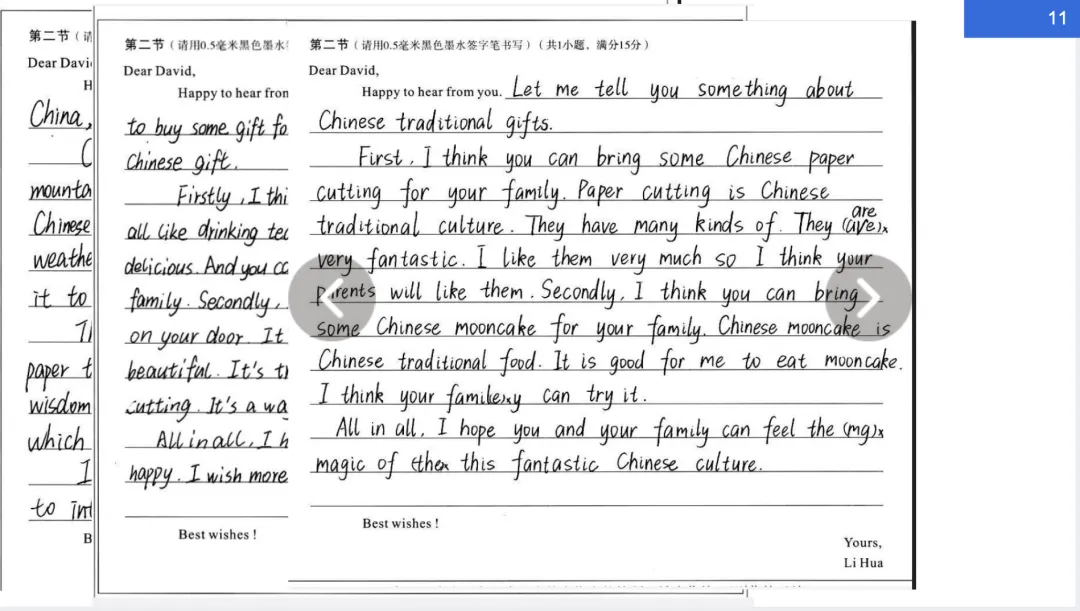 11
第二节（请
Dear Davi
H
China,
C
mounta
Chinese
weathe
it to
Tl
paper t
wisdom
which
I
to int
B
第二节（请用0.5毫米黑色墨水
Dear David,
Happy to hear fron
to buy some gift fo
Chinese gift.
Firstly, I thi
all like drinking tea
delicious. And you ca
family. Secondly,
on your door. It
beautiful. It's t
cutting. It's a wa
All in all, I h
happy. I wish more
Best wishes !
第二节（请用0.5毫米黑色墨水签字笔书写）（共1小题，满分15分）
Dear David,
Happy to hear from you. Let me tell you something about
Chinese traditional gifts.
First, I think you can bring some Chinese paper
cutting for your family. Paper cutting is Chinese
traditional culture. They have many kinds of. They are
very fantastic. I like them very much so I think your
parents will like them. Secondly, I think you can bring
some Chinese mooncake for your family. Chinese mooncake is
Chinese traditional food. It is good for me to eat mooncake.
I think your family can try it.
All in all, I hope you and your family can feel the (mg)x
magic of this fantastic Chinese culture.
Best wishes !
Yours,
Li Hua